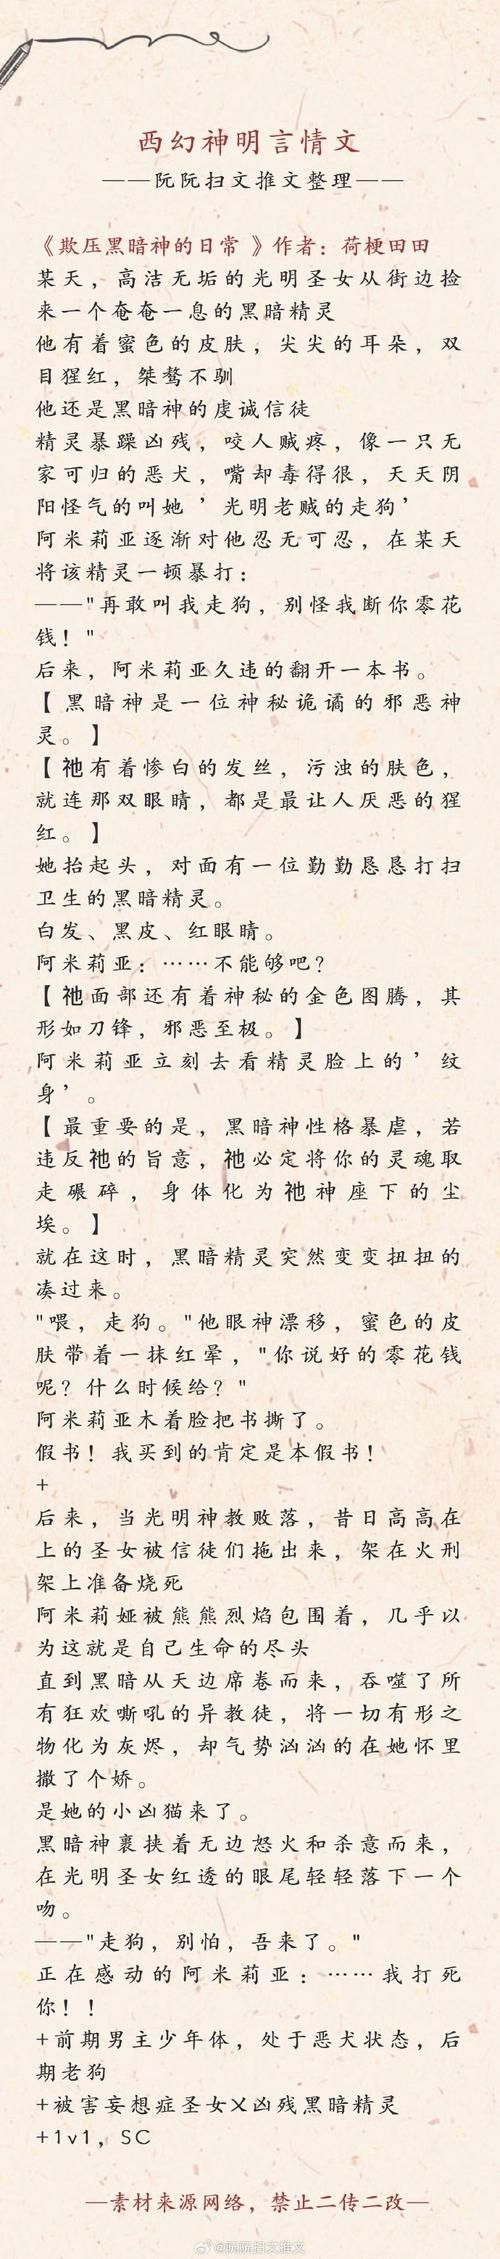 西幻神明言情文
——阮阮扫文推文整理——
《欺压黑暗神的日常 》作者：荷梗田田
某天，高洁无垢的光明圣女从街边捡
来一个奄奄一息的黑暗精灵
他有着蜜色的皮肤，尖尖的耳朵，双
目猩红，桀骜不驯
他还是黑暗神的虔诚信徒
精灵暴躁凶残，咬人贼疼，像一只无
家可归的恶犬，嘴却毒得很，天天阴
阳怪气的叫她 '光明老贼的走狗'
阿米莉亚逐渐对他忍无可忍，在某天
将该精灵一顿暴打：
——"再敢叫我走狗，别怪我断你零花
钱！"
后来，阿米莉亚久违的翻开一本书。
【黑暗神是一位神秘诡谲的邪恶神
灵。】
【祂有着惨白的发丝，污浊的肤色，
就连那双眼睛，都是最让人厌恶的猩
红。】
她抬起头，对面有一位勤勤恳恳打扫
卫生的黑暗精灵。
白发、黑皮、红眼睛。
阿米莉亚：……不能够吧？
【祂面部还有着神秘的金色图腾，其
形如刀锋，邪恶至极。】
阿米莉亚立刻去看精灵脸上的'纹
身'。
【最重要的是，黑暗神性格暴虐，若
违反祂的旨意，祂必定将你的灵魂取
走碾碎，身体化为祂神座下的尘
埃。】
就在这时，黑暗精灵突然变变扭扭的
凑过来。
"喂，走狗。"他眼神漂移，蜜色的皮
肤带着一抹红晕，"你说好的零花钱
呢？什么时候给？"
阿米莉亚木着脸把书撕了。
假书！我买到的肯定是本假书！
+
后来，当光明神教败落，昔日高高在
上的圣女被信徒们拖出来，架在火刑
架上准备烧死
阿米莉娅被熊熊烈焰包围着，几乎以
为这就是自己生命的尽头
直到黑暗从天边席卷而来，吞噬了所
有狂欢嘶吼的异教徒，将一切有形之
物化为灰烬，却气势汹汹的在她怀里
撒了个娇。
是她的小凶猫来了。
黑暗神裹挟着无边怒火和杀意而来，
在光明圣女红透的眼尾轻轻落下一个
吻。
——"走狗，别怕，吾来了。"
正在感动的阿米莉亚：……我打死
你！！
+前期男主少年体，处于恶犬状态，后
期老狗
+被害妄想症圣女X凶残黑暗精灵
+1v1，SC
—素材来源网络，禁止二传二改—
@阮阮扫文推文